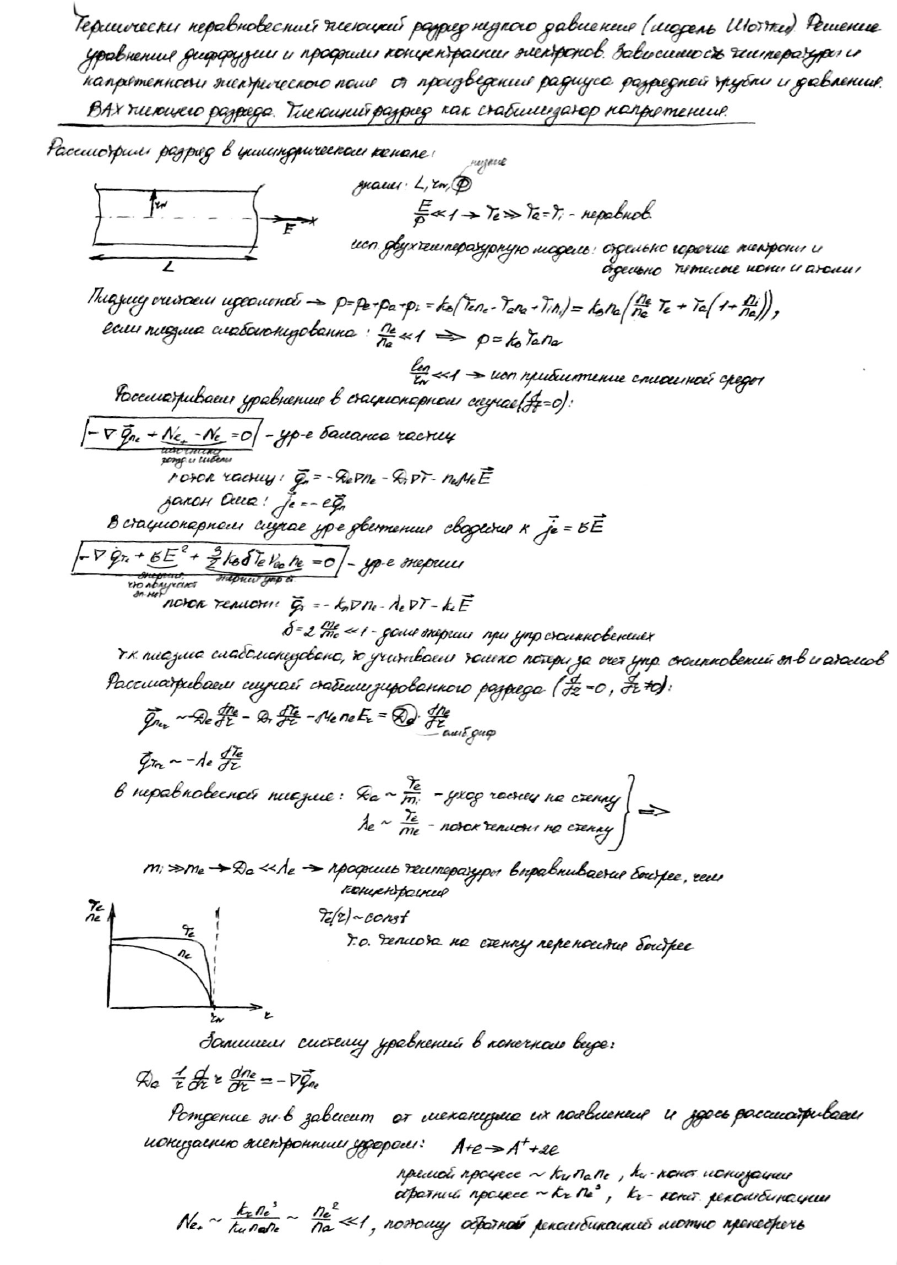 Термически неравновесный тлеющий разряд низкого давления (модель Шоттки) Решение
уравнения диффузии и профили концентрации электронов. Зависимость температуры и
напряженности электрического поля от произведения радиуса разрядной трубки и давления.
ВАХ тлеющего разряда. Тлеющий разряд как стабилизатор напряжения.
Рассмотрим разряд в цилиндрическом канале:
низкие
знаем: L, r_w, p
r_w
E
L
E/p ≪ 1 → Te ≫ Ta = Ti - неравнов.
исп. двухтемпературную модель: отдельно горячие электроны и
отдельно тяжелые ионы и атомы
Плазму считаем идеальной → p = pe + pa + pi = kв(Tene + Tana + Tini) = kв na(ne/na Te + Ta(1 + ni/na)),
если плазма слабоионизованна: ne/na ≪ 1 ⟹ p = kв Ta na
/r_w ≪ 1 → исп. приближение сплошной среды
Рассматриваем уравнение в стационарном случае (=0):
-∇g⃗ne + Ne+ - Ne- = 0 - ур-е баланса частиц
рожд и гибели
поток частиц: g⃗n = -De∇ne - Dт∇T - neμeE⃗
закон Ома: j⃗e = -eg⃗n
В стационарном случае ур-е движения сводится к j⃗e = σE⃗
-∇g⃗Te + σE² + 3/2 kв δ Te νea ne = 0 - ур-е энергии
энергия,
что получают
эл-нет
энергия упр.
поток теплоты: g⃗т = -kn∇ne - λe∇T - kEE⃗
δ = 2 me/ ≪ 1 - доля энергии при упр столкновениях
т.к. плазма слабоионизована, то учитываем только потери за счет упр. столкновений эл-в и атомов
Рассматриваем случай стабилизированного разряда (d/dz = 0, d/dr ≠ 0):
g⃗nr ~ -De dne/dr - Dт dTe/dr - μe ne Er = Da · dne/dr
амб диф
g⃗Tr ~ -λe dTe/dr
В неравновесной плазме: Da ~ Te/mi - уход частиц на стенку
λe ~ Te/me - поток теплоты на стенку
⟹
mi ≫ me → Da ≪ λe → профиль температуры выравнивается быстрее, чем
концентрация
Te
ne
Te
ne
r_w
r
Te(r) ~ const
т.о. теплота на стенку переносится быстрее
Запишем систему уравнений в конечном виде:
Da 1/r d/dr r dne/dr = -∇g⃗ne
Рождение эл-в зависит от механизма их появления и здесь рассматриваем
ионизацию электронным ударом: A+e → A⁺+2e
прямой процесс ~ kи na ne, kи - конст. ионизации
обратный процесс ~ kr ne³, kr - конст. рекомбинации
Ne+ ~ kr ne³/kи na ne ~ ne²/na ≪ 1, поэтому обратной рекомбинацией можно пренебречь